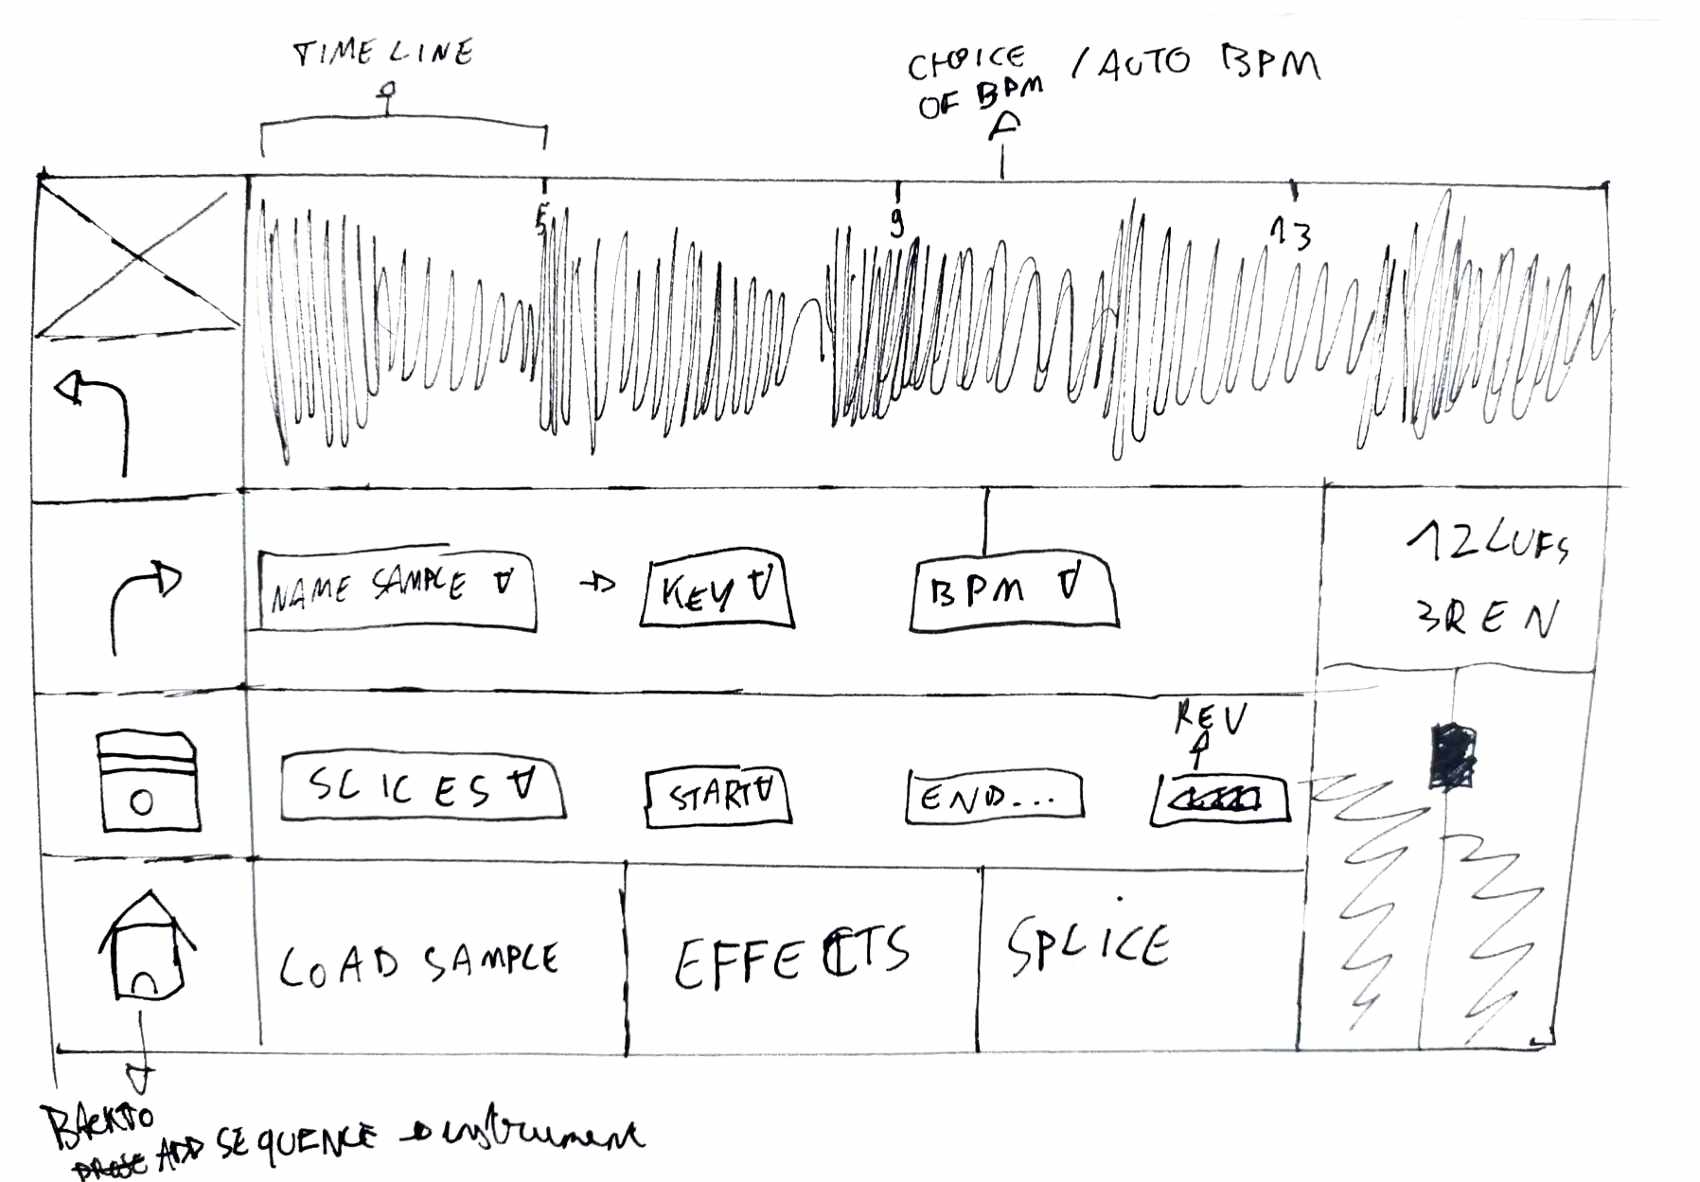 TIMELINE
CHOICE / AUTO BPM
OF BPM
5 9 13
NAME SAMPLE KEY BPM
12 LUFS
3 R E N
REV
SLICES START END...
LOAD SAMPLE EFFECTS SPLICE
BACK TO
ADD SEQUENCE instrument